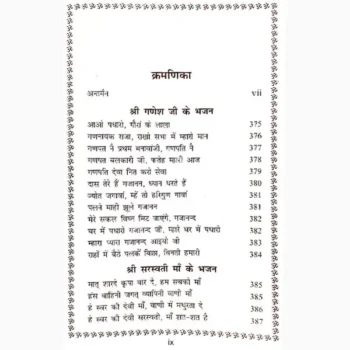 क्रमणिका
अनार्मन vii
श्री गणेश जी के भजन
आओ पधारो, गौरां के लाला 375
गणनायक राजा, राखो सभा में म्हारो मान 376
गणपत नै प्रथम मनावांजी, गणपति नै 377
गणपत बलकारी जी, फतेह म्हारी आज 378
गणपति देवा नित करो सेवा 379
दास तेरे हैं गजानन, ध्यान धरते हैं 380
ज्योत जगावां, म्हें तो हरिगुण गावां 381
पलने माही झूले गजानन 381
मेरे सकल विघ्न मिट जाएंगे, गजानन्द 382
घर में पधारो गजानन्द जी, म्हारे घर में पधारो 382
म्हारा प्यारा गजानन्द आइयो जी 383
राहों में बैठे पलकें बिछा, विनती हमारी 384
श्री सरस्वती माँ के भजन
मातृ शारदे कृपा वार दे, हम सबको माँ 385
हंस वाहिनी जगत् व्यापिनी वाणी माँ 385
हे स्वर की देवी माँ, वाणी में मधुरता दे 386
हे स्वर की देवी सरस्वती, माँ शत-शत है 387
ix